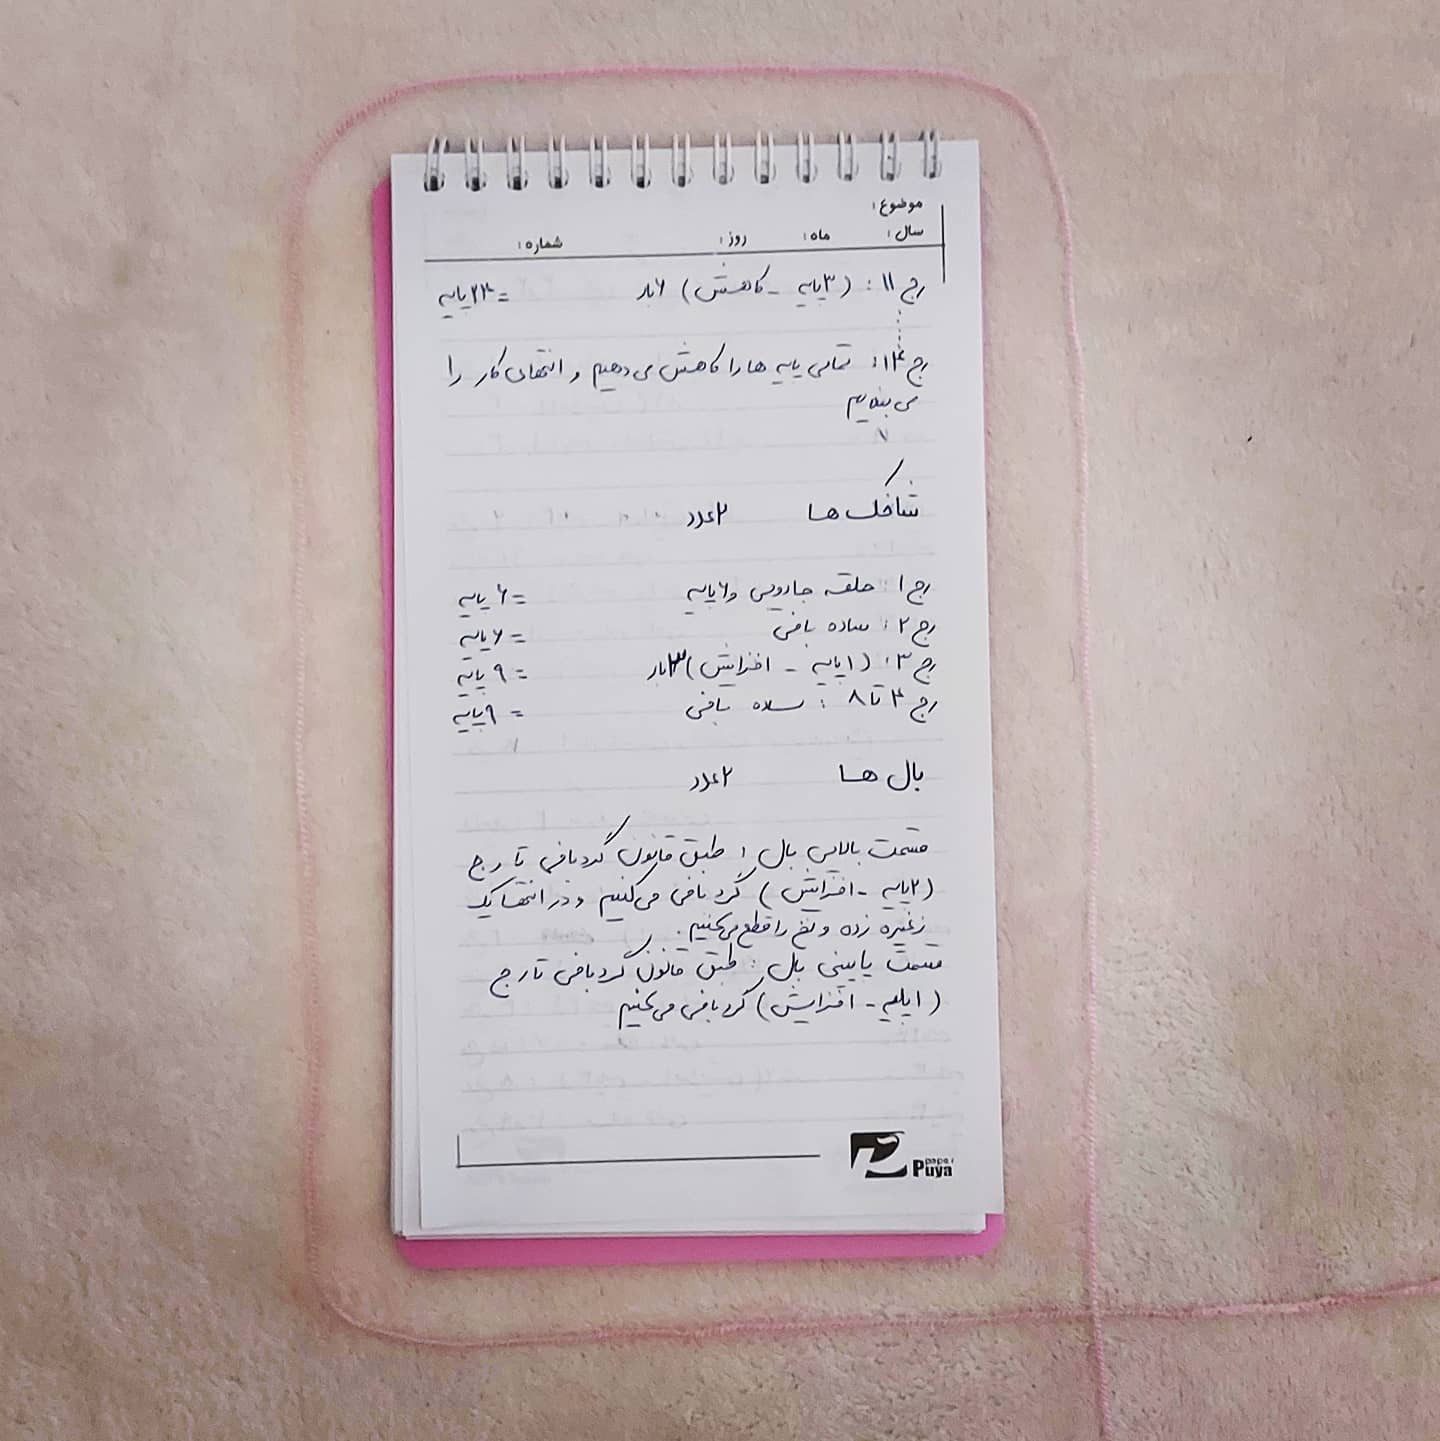 موضوع:
سال: ماه: روز: شماره:
رج ۱۱: (۳پایه - کاهش) ۶بار =۲۴پایه
رج ۱۴: تمامی پایه ها را کاهش می دهیم و انتهای کار را
می بندیم
شاخک ها ۲عدد
رج ۱: حلقه جادویی و۶پایه =۶پایه
رج ۲: ساده بافی =۶پایه
رج ۳: (۱پایه - افزایش)۳بار =۹پایه
رج ۴ تا ۸: ساده بافی =۹پایه
بال ها ۲عدد
قسمت بالایی بال: طبق قانون گردبافی تا رج
(۲پایه - افزایش) گردبافی می کنیم و در انتها یک
زنجیره زده و نخ را قطع می کنیم.
قسمت پایینی بال: طبق قانون گردبافی تا رج
(۱پایه - افزایش) گردبافی می کنیم
paper
Puya